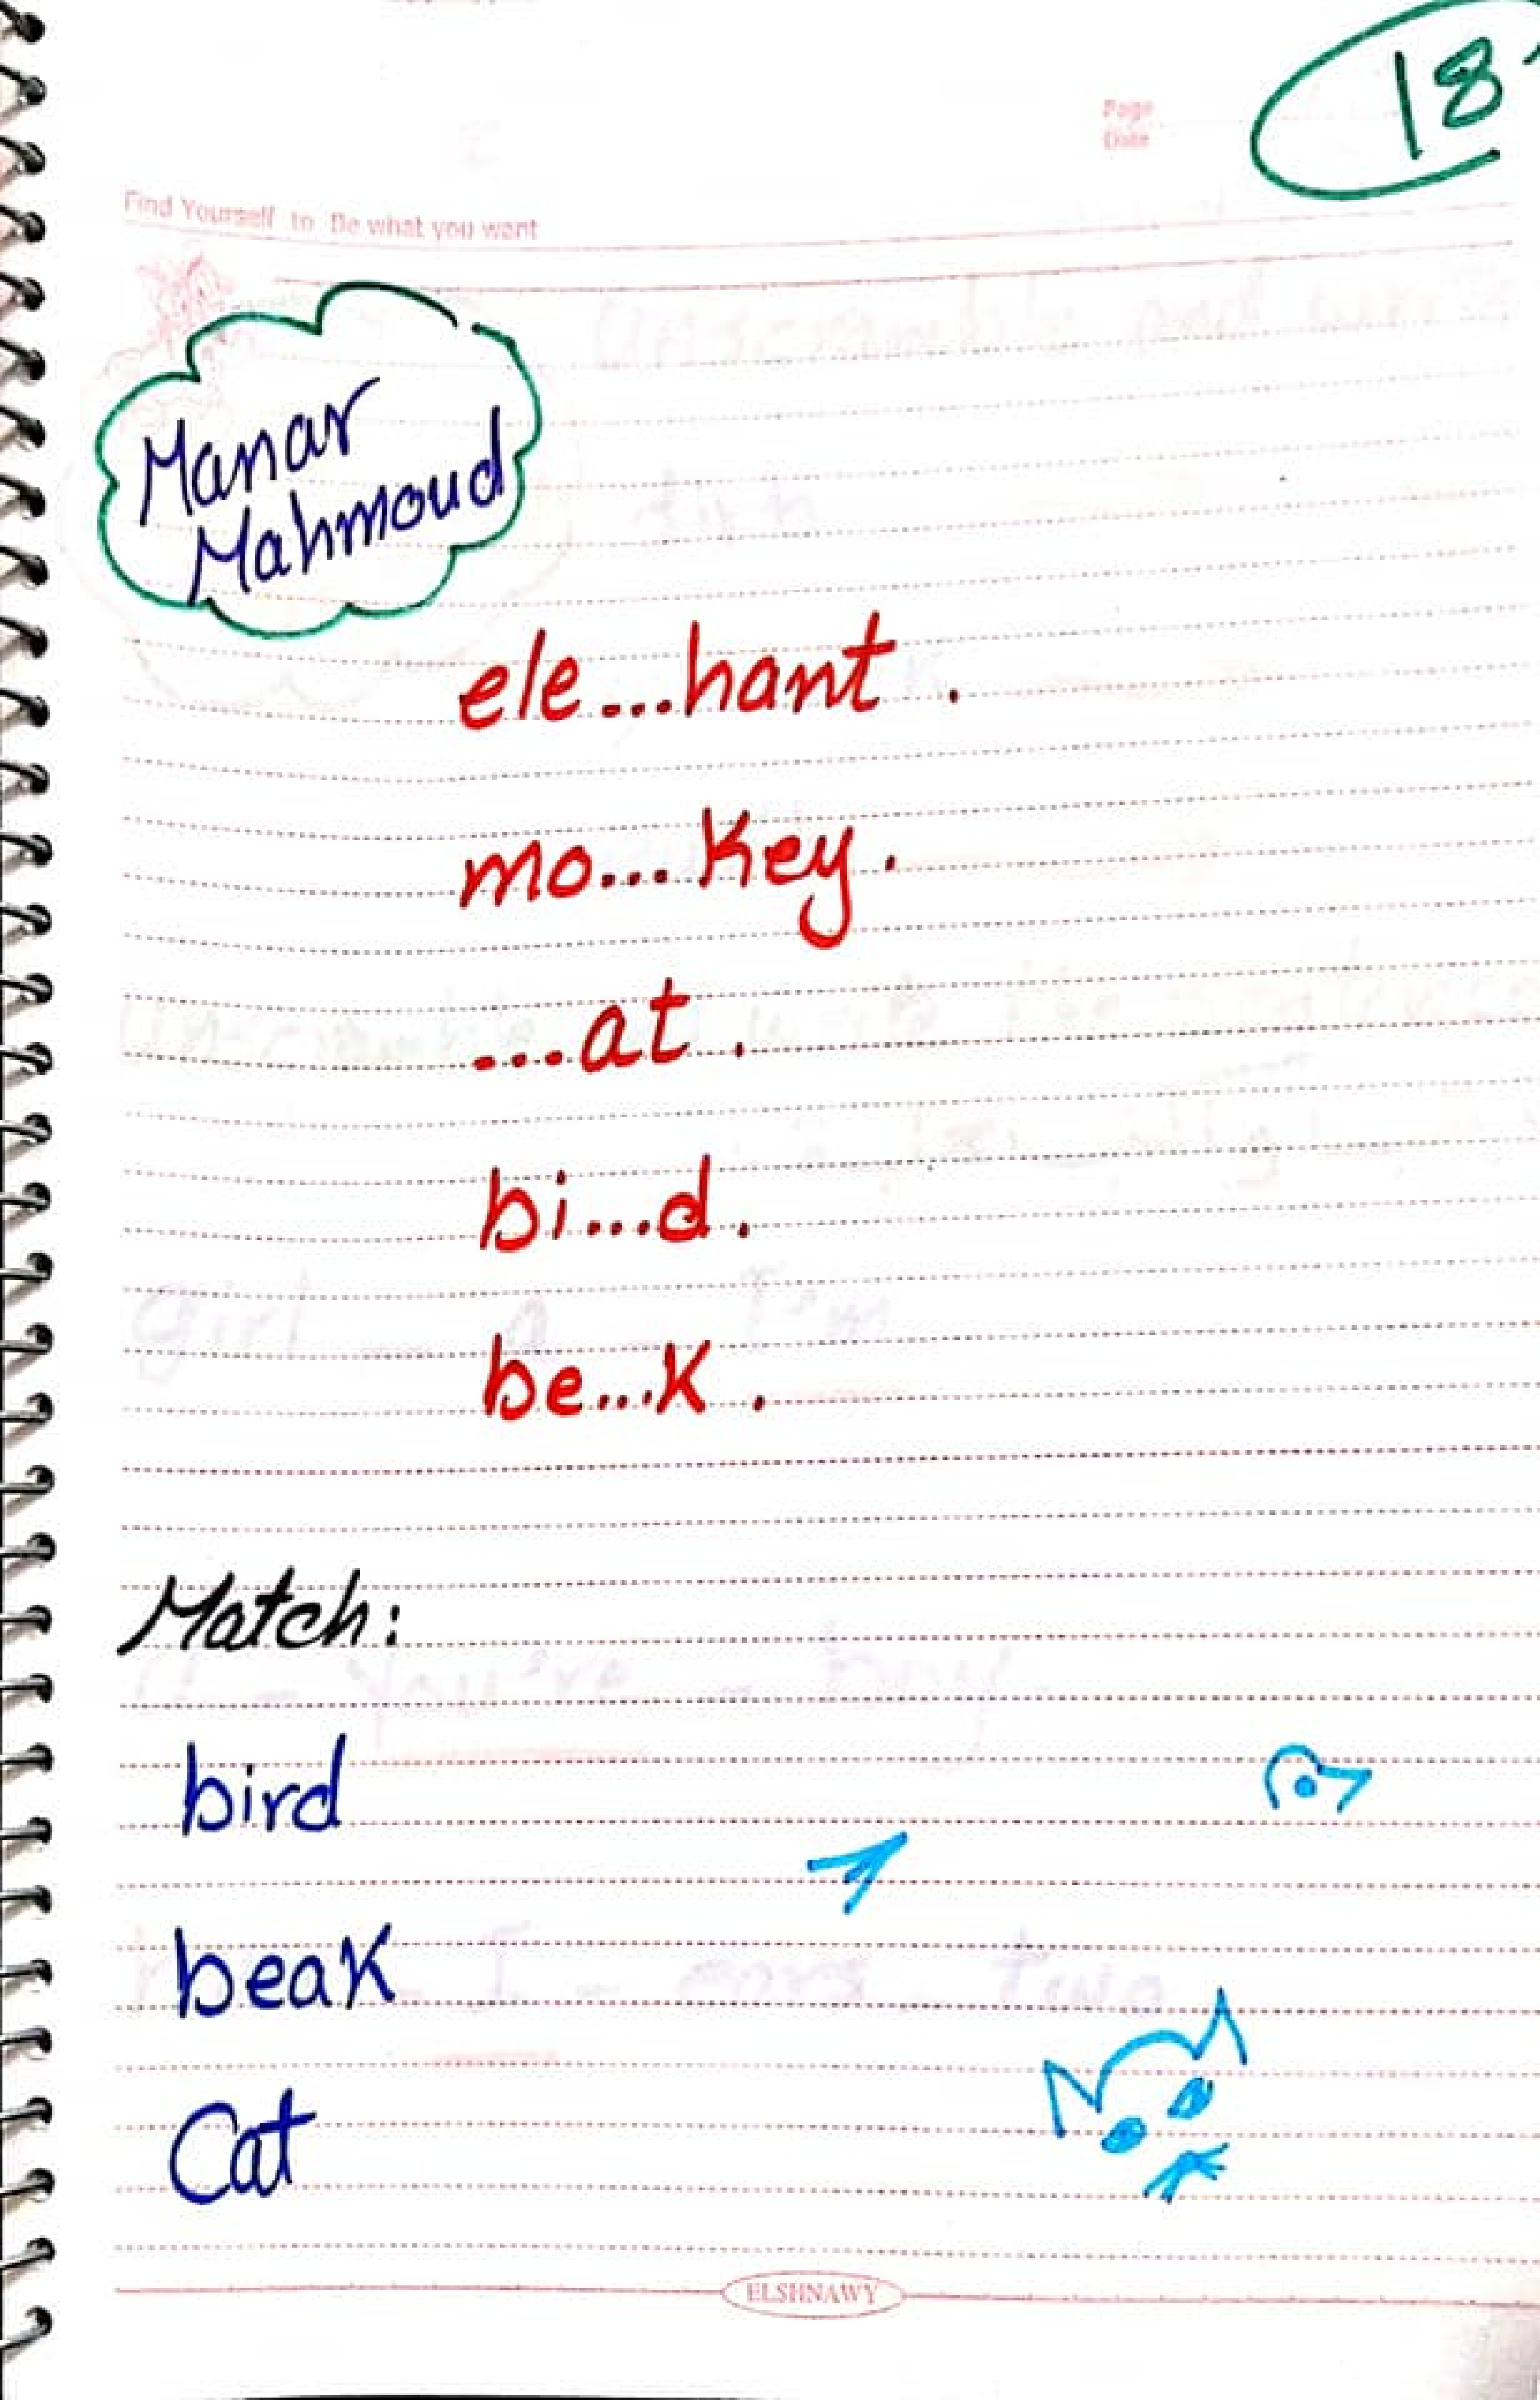 18
Page
Date
Find Yourself to Be what you want
Manar
Mahmoud
ele...hant.
mo...key.
...at.
bi...d.
be...k.
Match:
bird
beak
Cat
ELSHNAWY